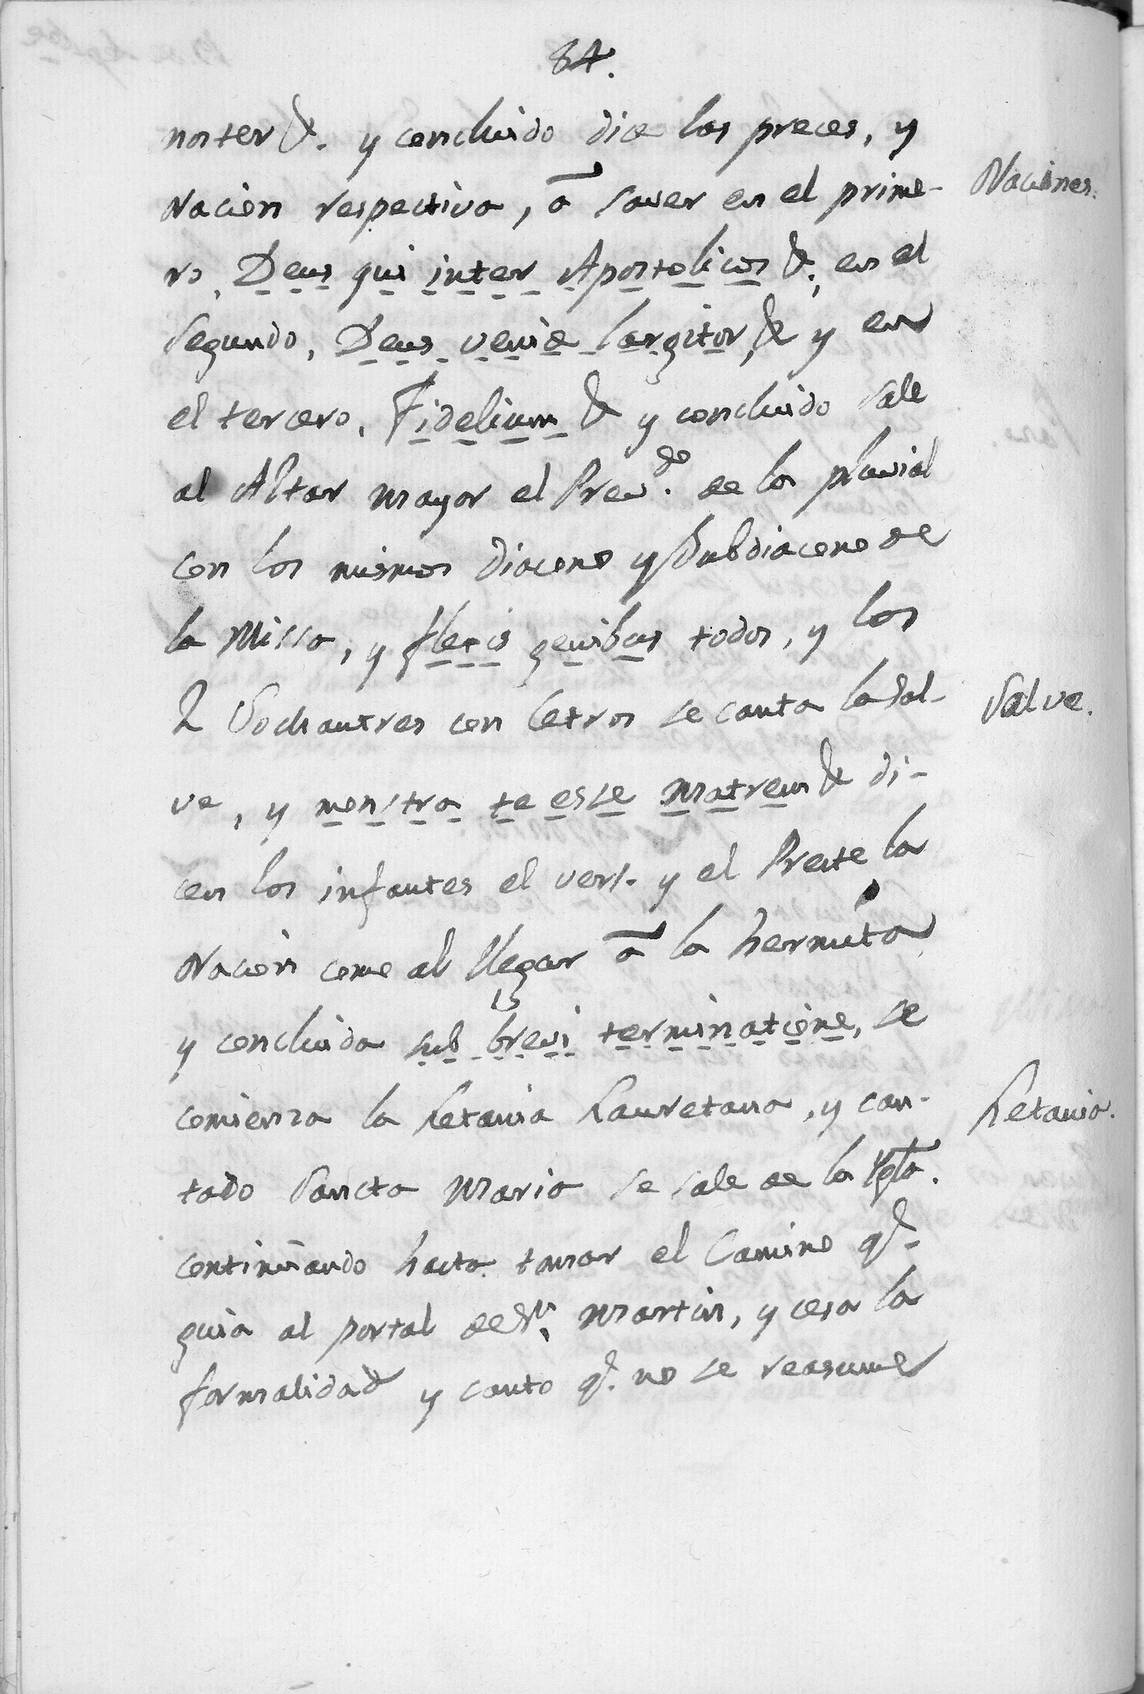 84.
noster &. y concluido dice las preces, y
Oracion respectiva, â saver en el prime- Oraciones.
ro, Deus qui inter Apostolicos &, en el
segundo, Deus venie largitor, & y en
el tercero, Fidelium & y concluido sale
al Altar mayor el Prev.do de los pluvial
con los mismos Diacono y Subdiacono de
la Missa, y flexis genibus todos, y los
2 Sochantres con cetros se canta la Sal- Salve.
ve, y monstra te esse Matrem & di-
cen los infantes el vers. y el Preste la
Oracion como al llegar â la hermita
y concluida sub brevi terminatione, se
comienza la Letania Lauretana, y can- Letania.
tado Sancta Maria se sale de la Ygla.
continuando hasta tomar el Camino q.e
guia al portal de Sn. Martin, y cesa la
formalidad y canto q.e no se reasume